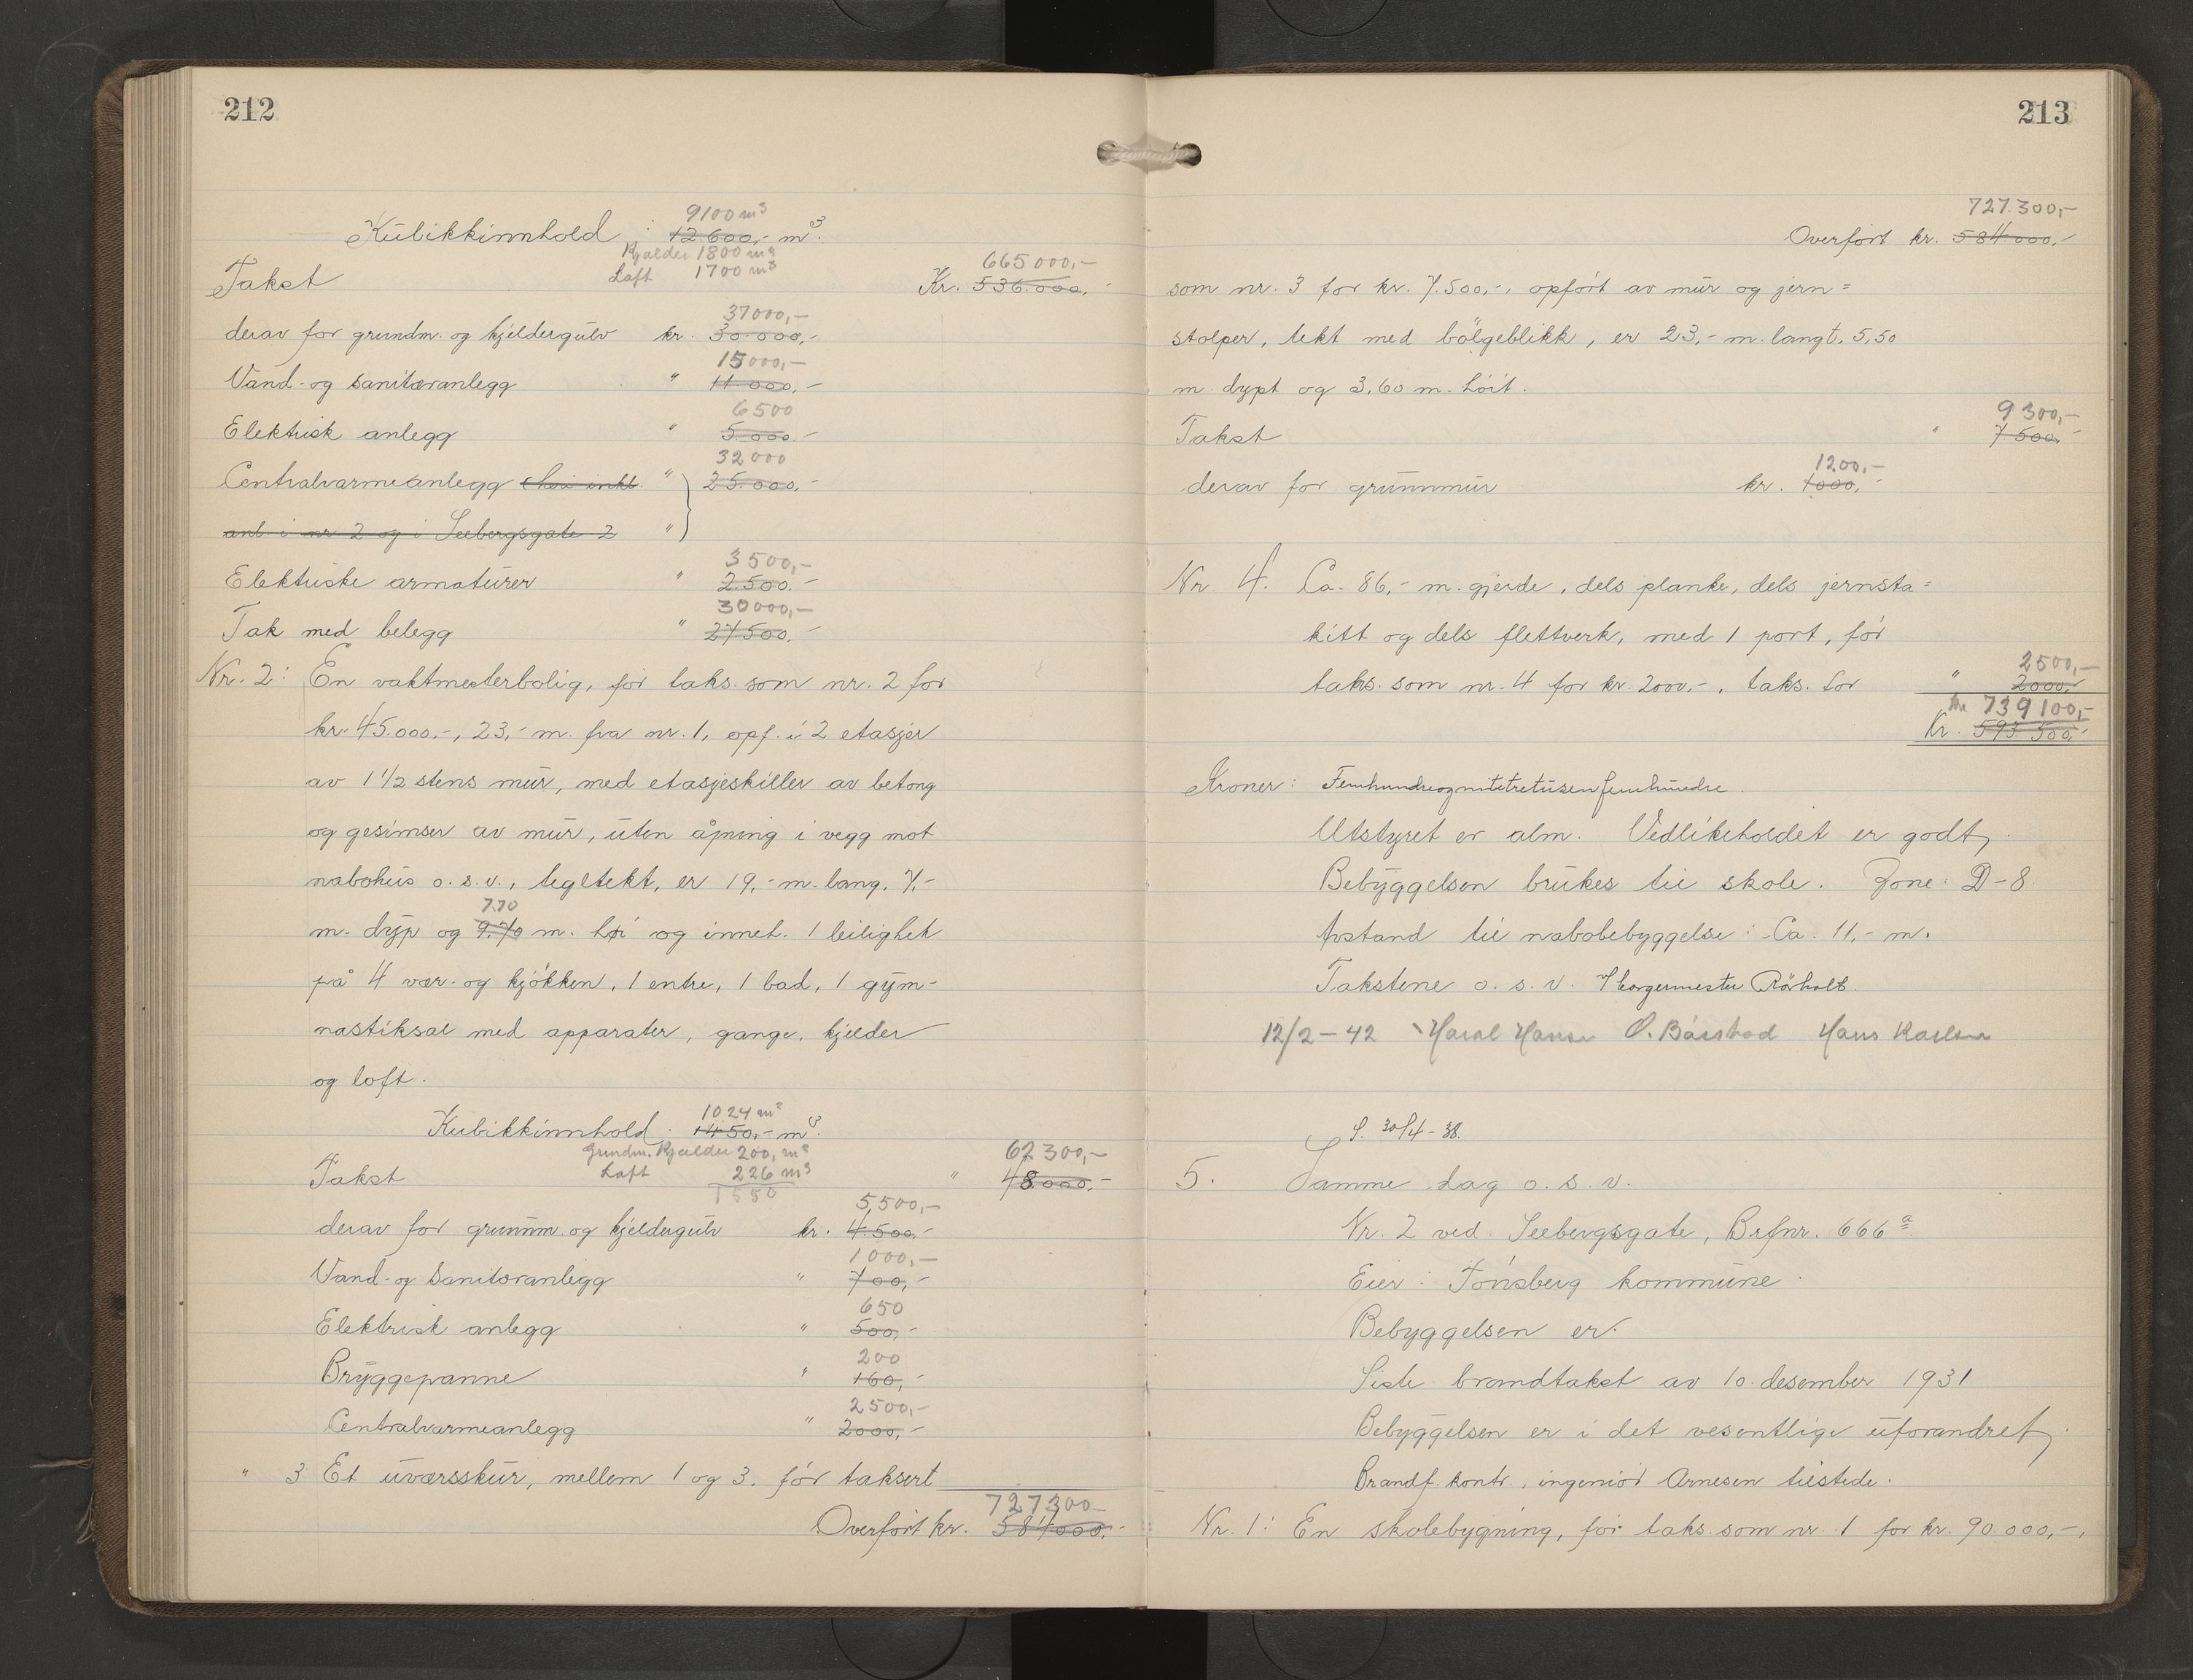 212
9100 m³
Kubikkinnhold : 12600,- m³.
Kjælder 1800 m³
Loft 1700 m³
665000,-
Takst Kr. 536.000,-
37000,-
derav for grundm. og kjeldergulv kr. 30.000,-
15000,-
Vand- og sanitæranlegg " 11000,-
6500
Elektrisk anlegg " 5.000.-
32000
Centralvarmeanlegg " 25.000,-
anl i nr 2 og i Seebergsgate 2 "
3500,-
Elektriske armaturer " 2.500.-
30000,-
Tak med belegg " 27500.-
Nr. 2: En vaktmesterbolig, för taks. som nr. 2 for
kr. 45.000.-, 23,- m. fra nr. 1, opf. i 2 etasjer
av 1 1/2 stens mur, med etasjeskiller av betong
og gesimser av mur, uten åpning i vegg mot
nabohus o.s.v., tegltekt, er 19,- m. lang, 7,-
7.70
m. dyp og 9.70 m. høi og inneh. 1 leilighet
på 4 vær. og kjökken, 1 entre, 1 bad, 1 gym-
nastiksal med apparater, gange, kjelder
og loft.
1024 m³
Kubikkinnhold. 1450,- m³.
Grundm. Kjælder 200, m³
62300,-
Loft 226 m³
Takst " 48000,-
1550
5,500,-
derav for grunnm. og kjeldergulv kr. 4.500,-
1000,-
Vand- og Sanitæranlegg " 700,-
650
Elektrisk anlegg " 500,-
200
Bryggepanne " 160,-
2500,-
Centralvarmeanlegg " 2000,-
" 3 Et uværsskur, mellem 1 og 3. för taksert
727300-
Overfört kr. 584000,-
213
727.300,-
Overfört kr. 584000,-
som nr. 3 for kr. 7.500,-, opfört av mur og jern=
stolper, tekt med bölgeblikk, er 23,- m. langt, 5,50
m. dypt og 3,60 m. höit.
9300,-
Takst " 7.500,-
1200,-
derav for grunnmur kr. 1000,-
Nr. 4. Ca. 86,- m. gjerde, dels planke, dels jernsta=
kitt og dels flettverk, med 1 port, för
2500,-
taks. som nr. 4 for kr. 2000,-, taks. for " 2000,-
kr 739100,-
Kr. 593.500,-
Kroner: Femhundreognittitretusenfemhundre.
Utstyret er alm. Vedlikeholdet er godt,
Bebyggelsen brukes til skole. Zone: D-8
Avstand til nabobebyggelse: Ca. 11,- m.
Takstene o.s.v. borgermester Rörholt.
12/2-42 Haral Hansen O. Bårstad Hans Karlsen
S. 30/4-38.
5. Samme dag o.s.v.
Nr. 2 ved Seebergsgate, Brfnr. 666 a
Eier: Tönsberg kommune.
Bebyggelsen er.
Siste brandtakst av 10. desember 1931
Bebyggelsen er i det vesentlige uforandret,
Brandf. kontr., ingeniör Arnesen tilstede.
Nr. 1: En skolebygning, för taks. som nr. 1 for kr. 90.000,-,